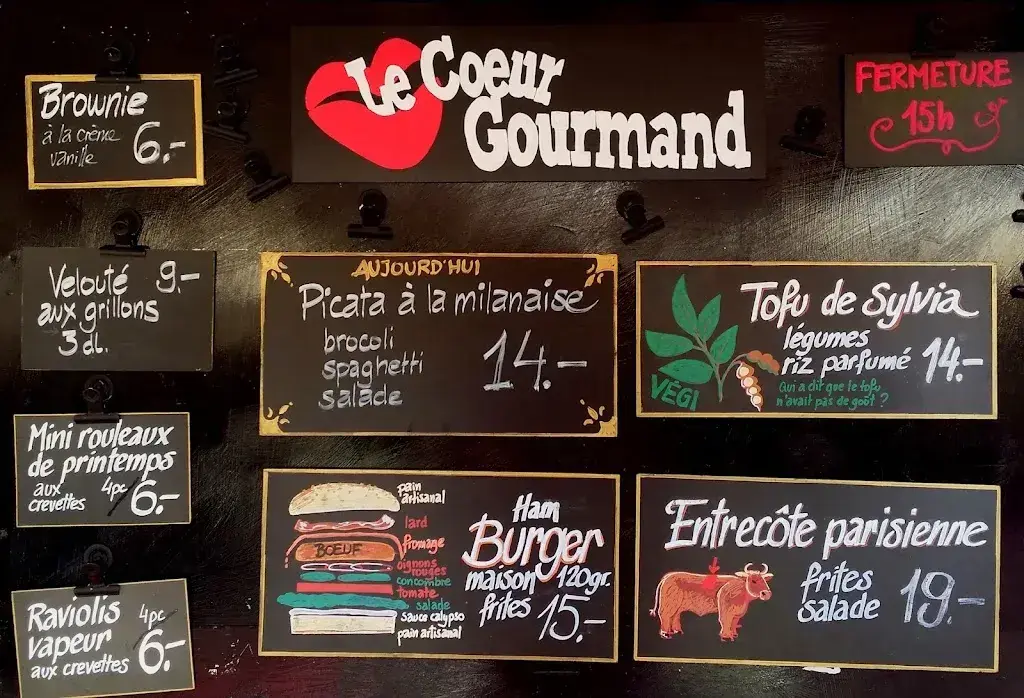 Le Coeur
Gourmand
FERMETURE
15h
Brownie
à la crème
vanille
6.-
Velouté 9.-
aux grillons
3 dl.
Mini rouleaux
de printemps
aux
crevettes
4pc
6.-
Raviolis 4pc
vapeur
aux crevettes
6.-
AUJOURD'HUI
Picata à la milanaise
brocoli
spaghetti
salade
14.-
Tofu de Sylvia
légumes
riz parfumé
14.-
VÉGI
Qui a dit que le tofu
n'avait pas de goût ?
pain
artisanal
lard
fromage
BOEUF
oignons
rouges
concombre
tomate
salade
sauce calypso
pain artisanal
Ham
Burger
maison 120gr.
frites 15.-
Entrecôte parisienne
frites
salade
19.-